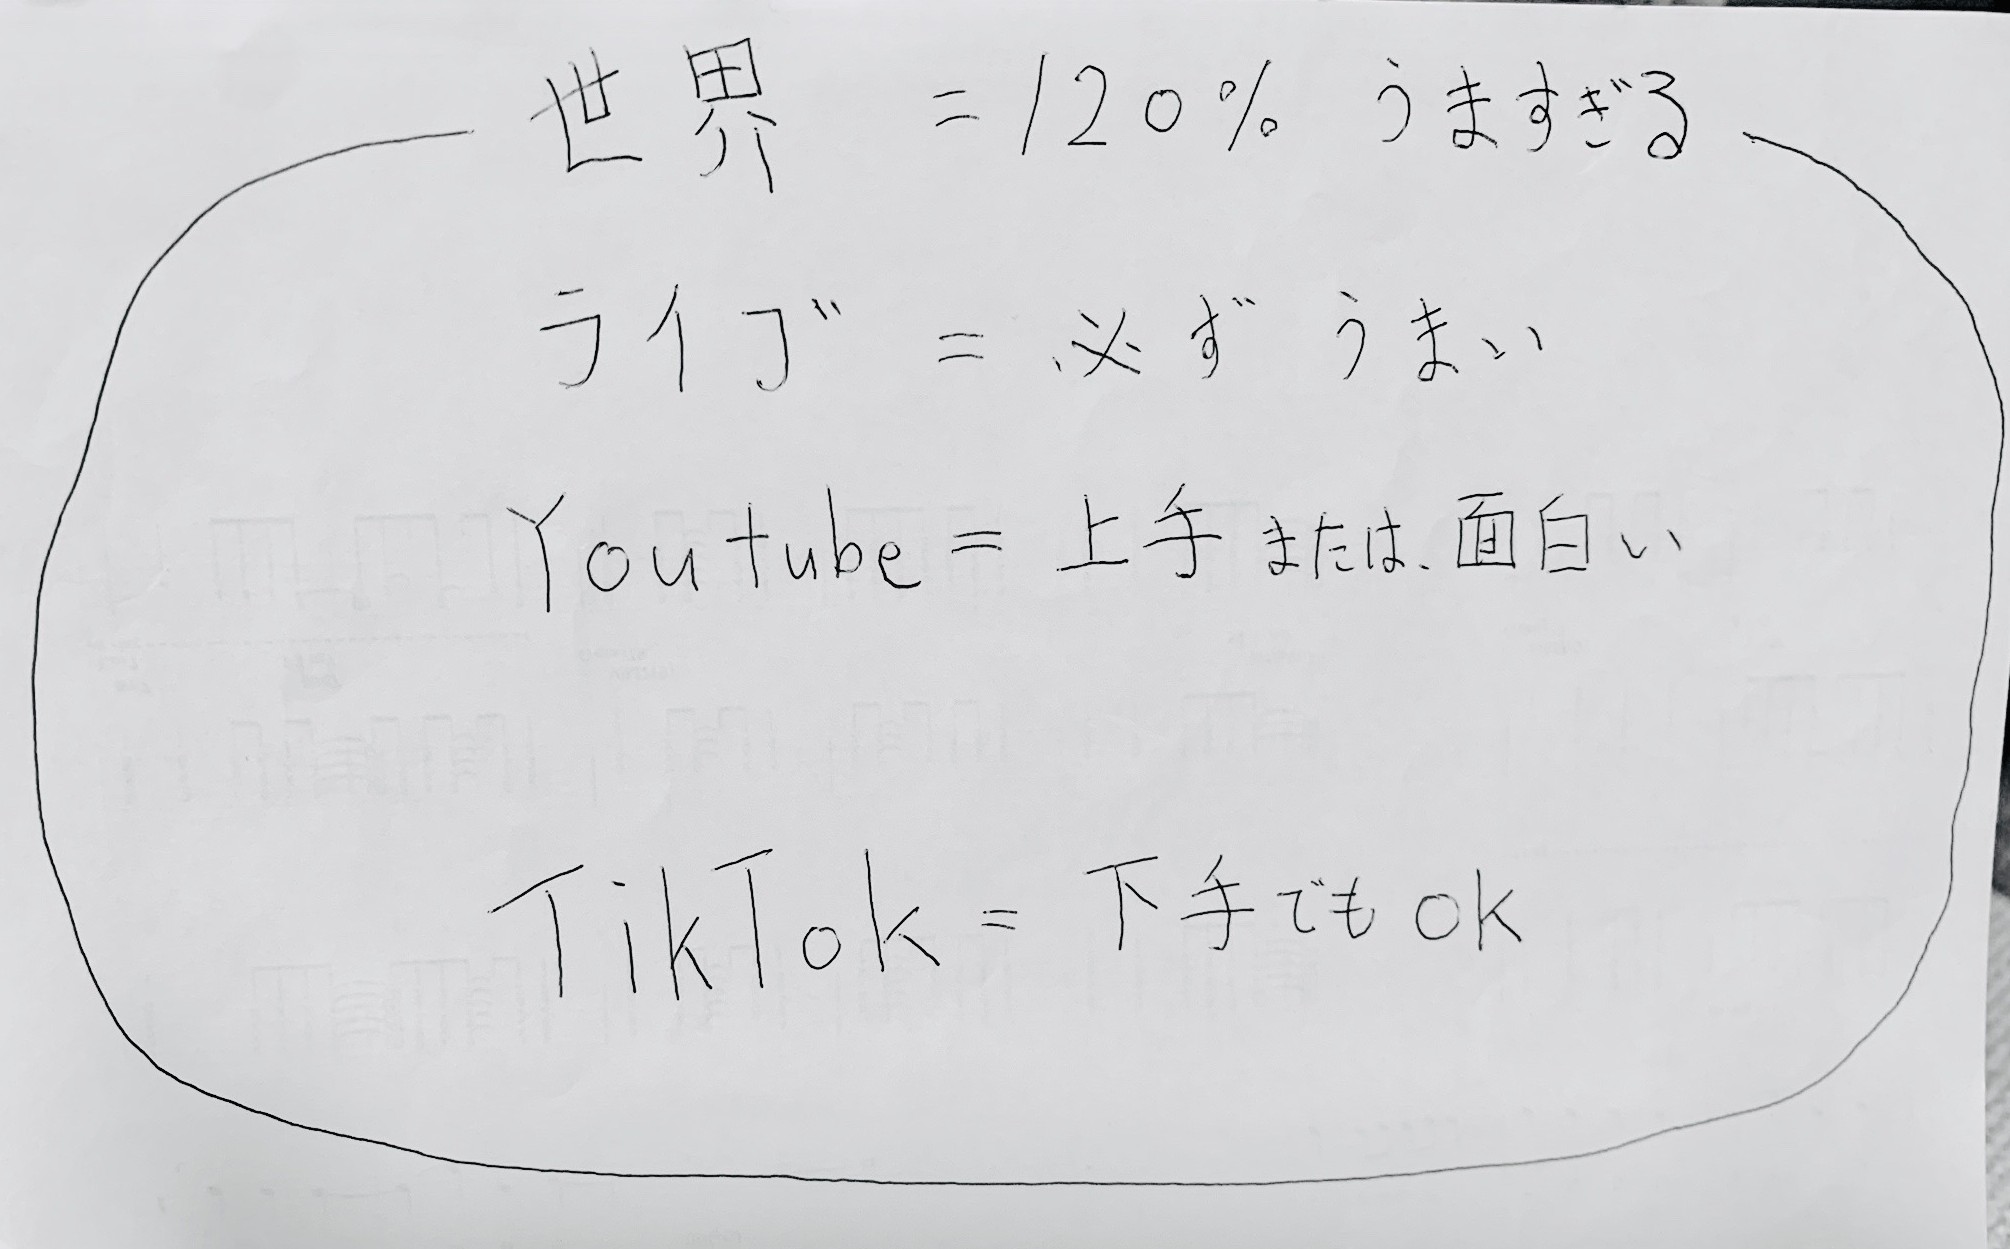 世界 = 120% うますぎる
ライブ = 必ず うまい
Youtube = 上手 または、面白い
TikTok = 下手でも ok